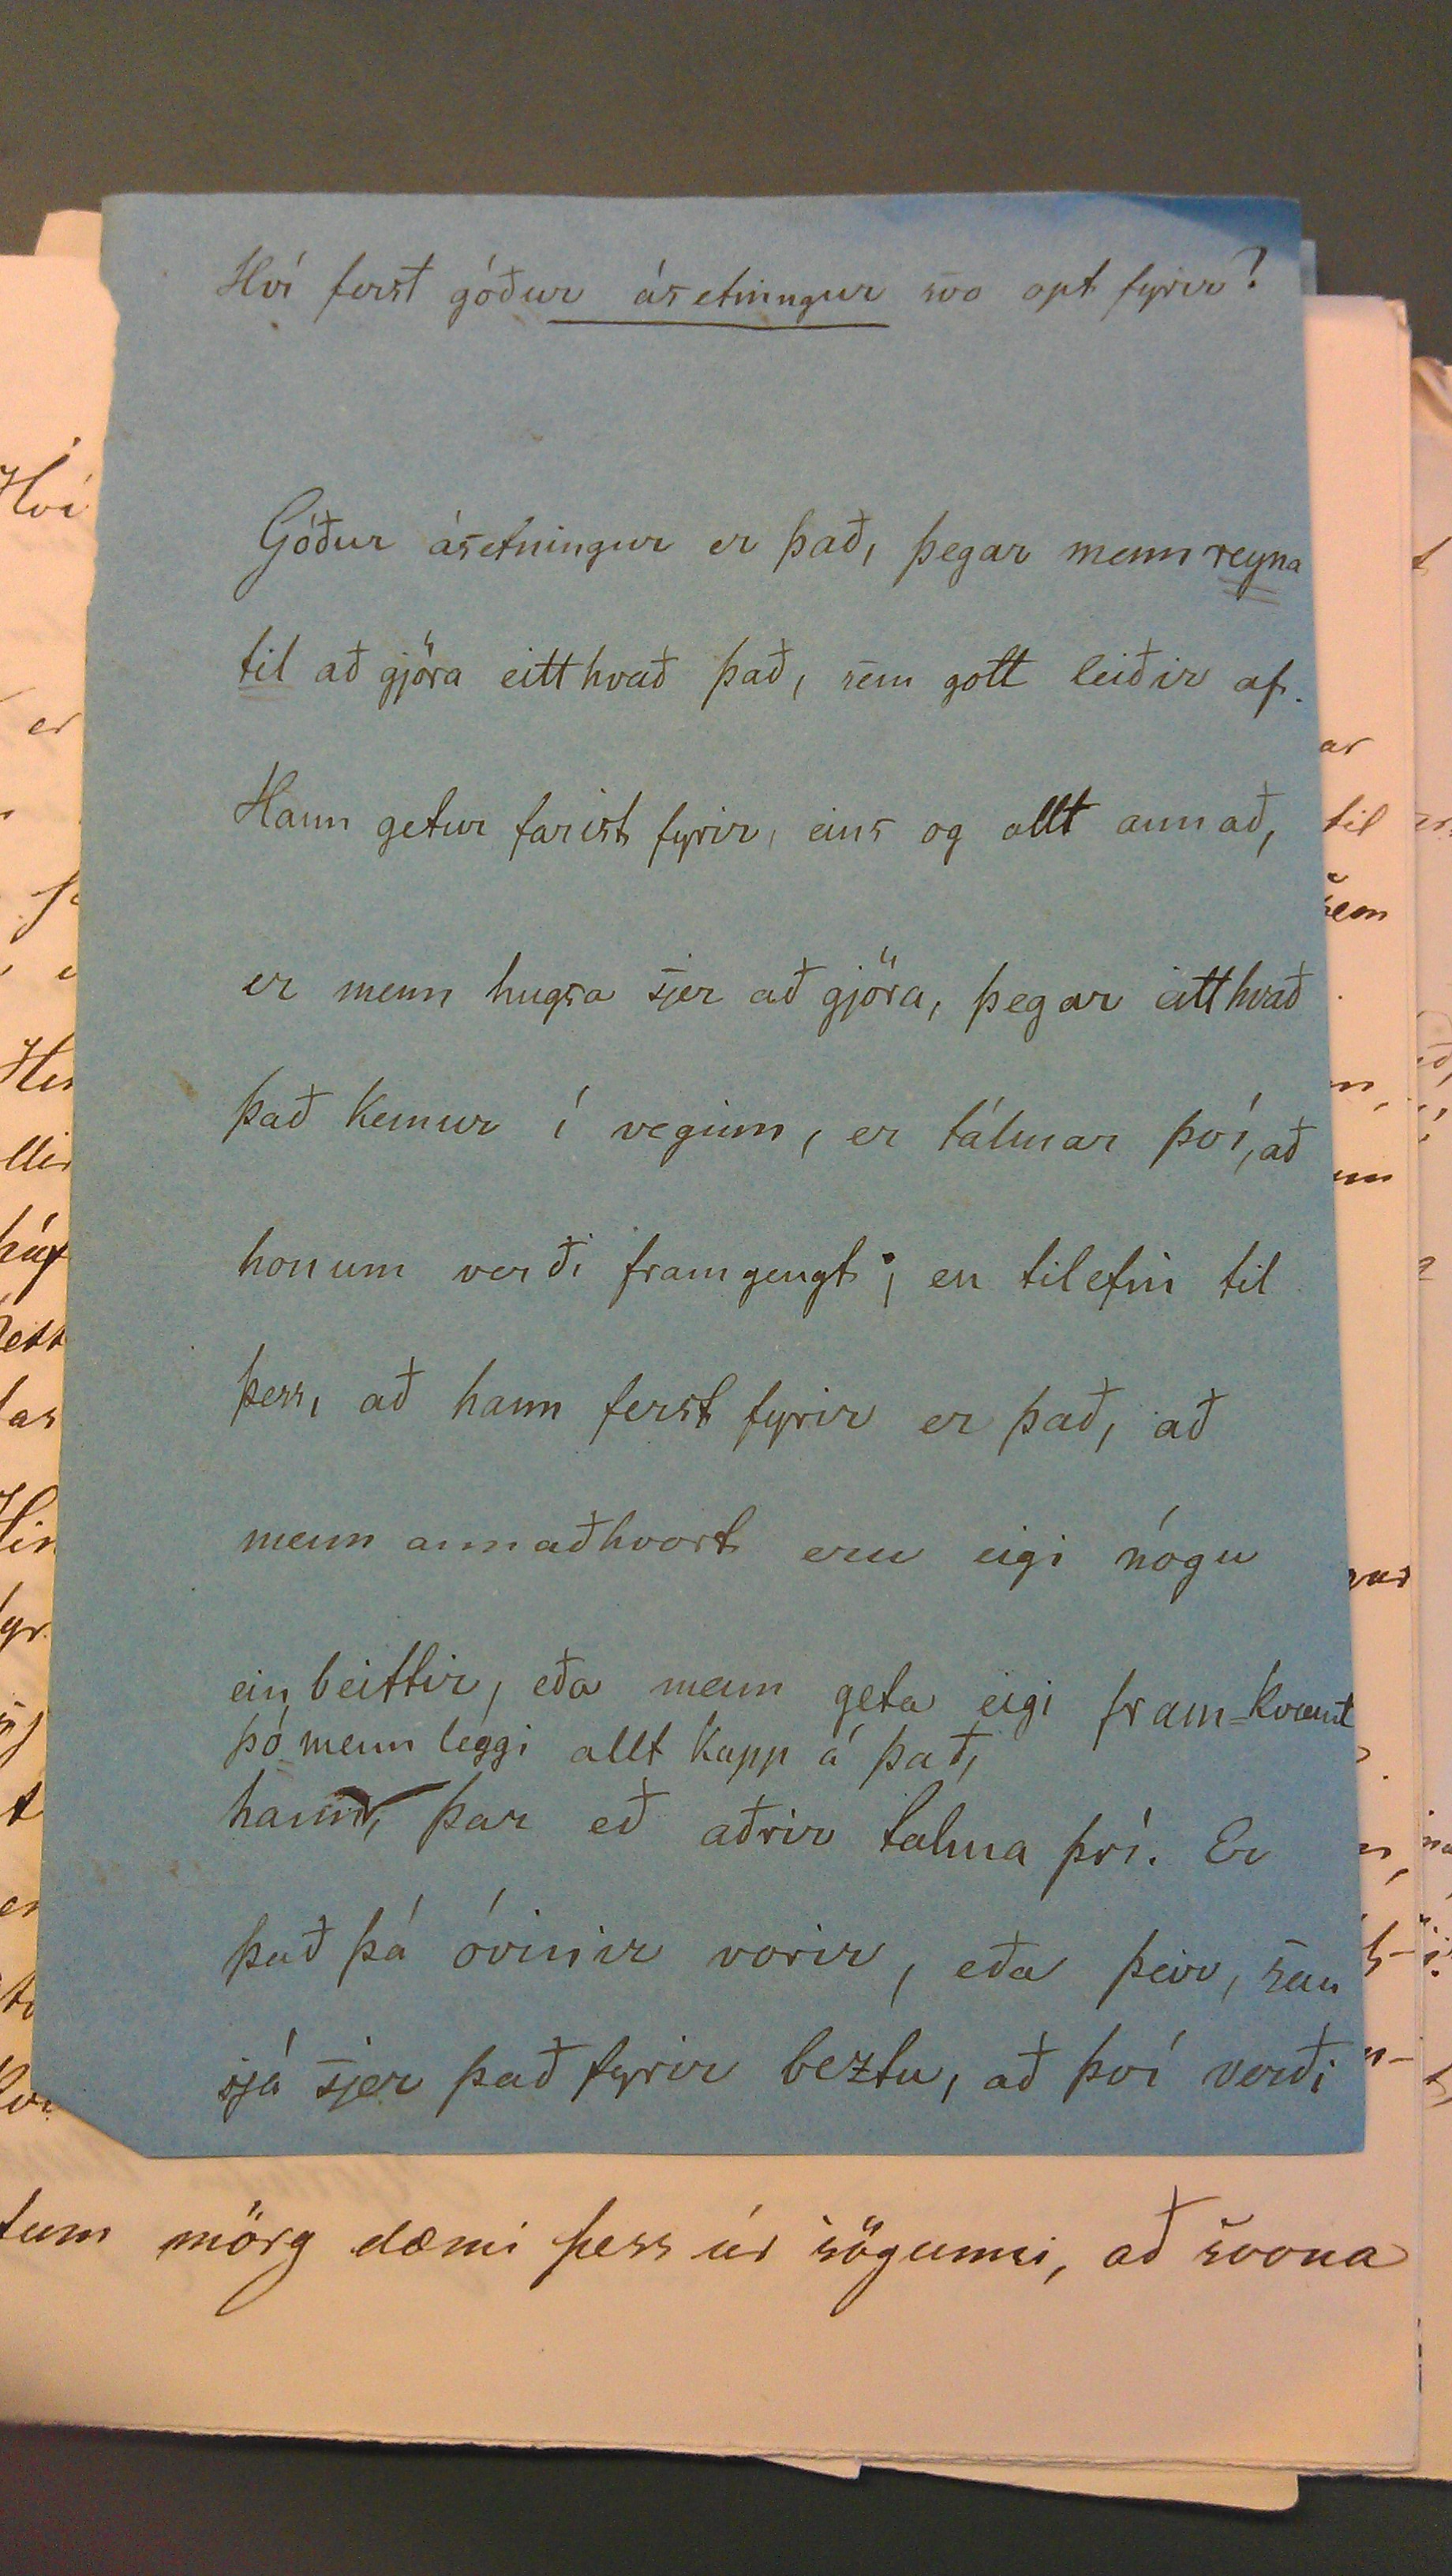 Hví ferst góður ásetningur svo opt fyrir?
Góður ásetningur er það, þegar menn reyna
til að gjöra eitthvað það, sem gott leiðir af.
Hann getur farist fyrir, eins og allt annað,
er menn hugsa sjer að gjöra, þegar eitthvað
það kemur í veginn, er tálmar því, að
honum verði framgengt; en tilefni til
þess, að hann ferst fyrir er það, að
menn annaðhvort eru eigi nógu
einbeittir, eða menn geta eigi fram-kvæmt
þó menn leggi allt kapp á það,
hann, þar eð aðrir talma því. Er
það þá óvinir vorir, eða þeir, sem
sjá sjer það fyrir beztu, að því verði
tum mörg dæmi þess úr sögunni, að svona
Hví
er
Het
llir
til
sem
ar